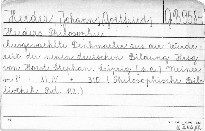 Herder Johann Gottfried
Herders Philosophie
Ausgewählte Denkmäler aus der Werde-
zeit der neuen deutschen Bildung. Hrsg.
von Horst Stephan. Leipzig (s.a.) Meiner
m 8° XLIV + 310 (Philosophische Bib-
liothek Bd. 112.)